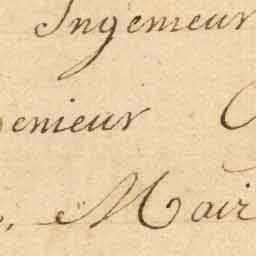 Ingenieur
enieur
Mair